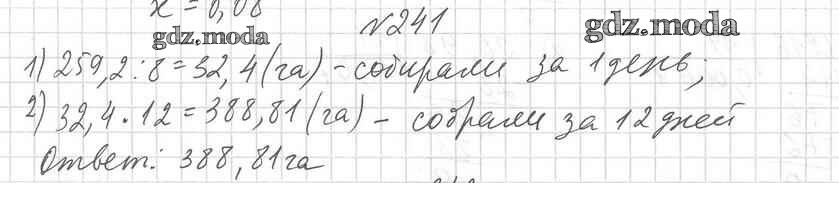 x = 0,08
№241
gdz.moda
gdz.moda
1) 259,2 : 8 = 32,4 (га) - собирали за 1 день;
2) 32,4 · 12 = 388,81 (га) - собрали за 12 дней
Ответ: 388,81 га